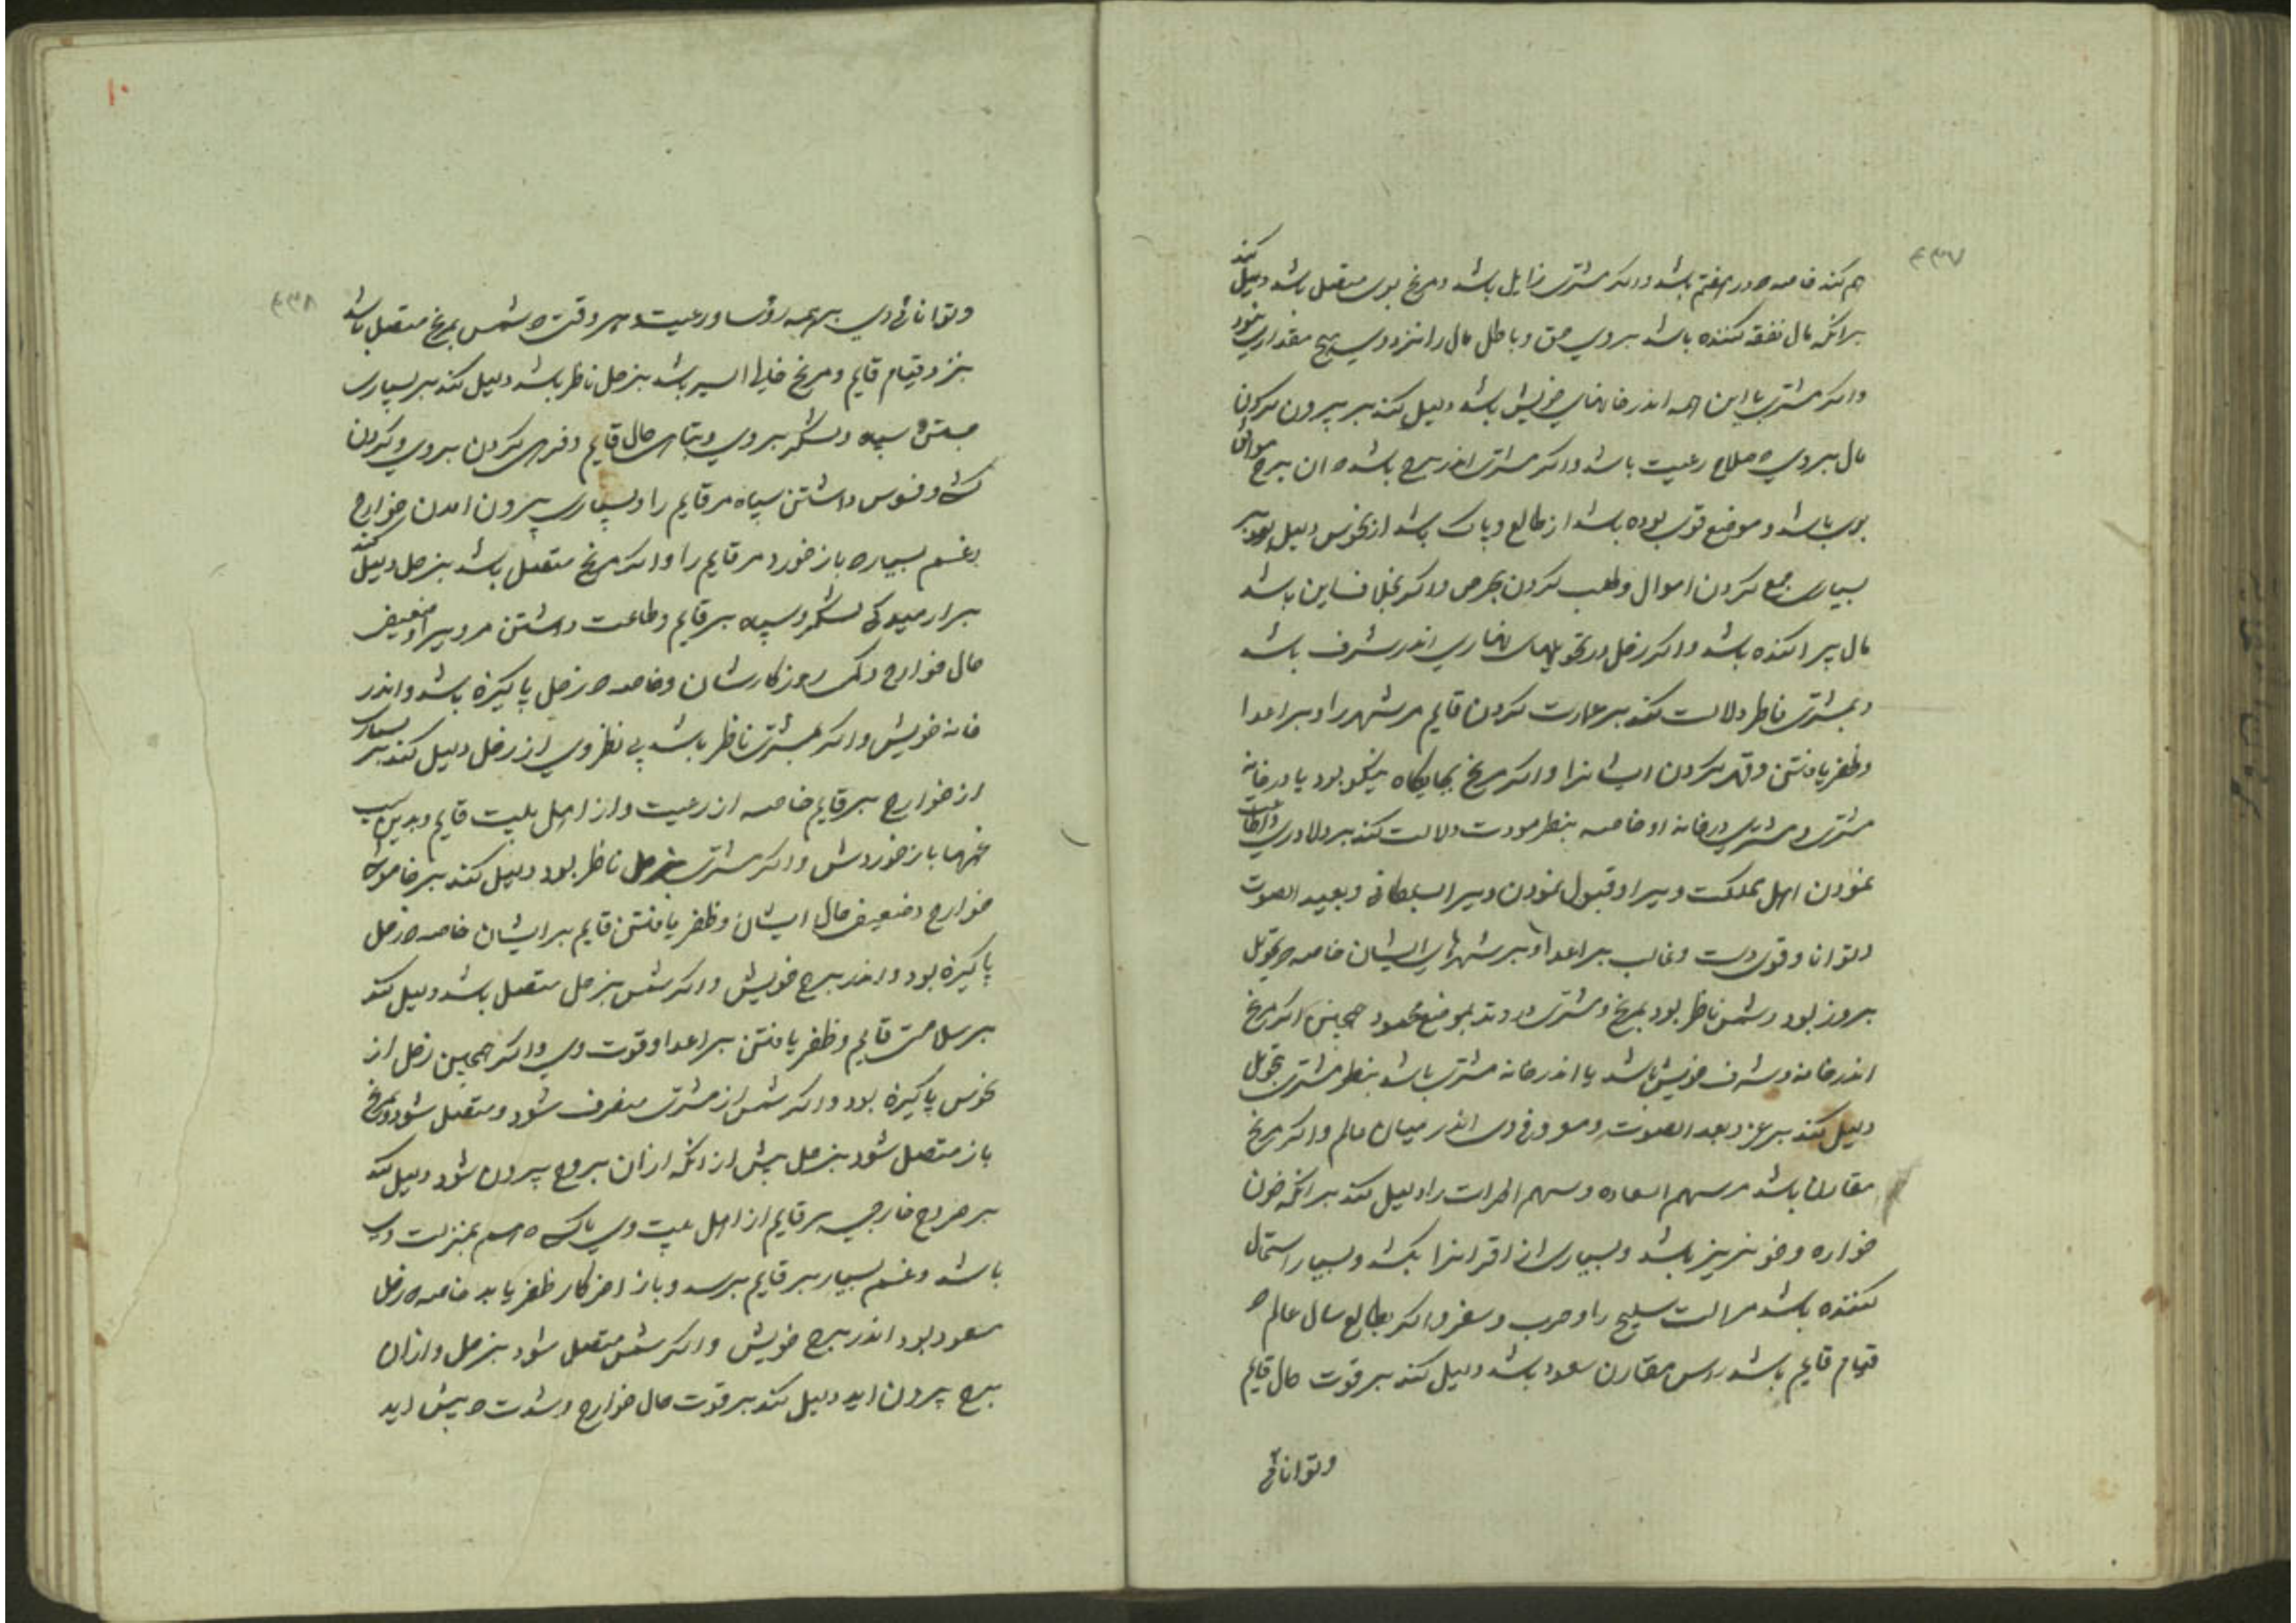 ۴۳۷
هم کند خاصه در هفتم باشد و اکر مشتری زایل باشد و مریخ بوی متصل باشد دلیل کند
برانکه مال نفقه کننده باشد بروی حق و باطل مال را نزد وی هیچ مقداری نبود
و اکر مشتری با این همه اندر خانهای خویش باشد دلیل کند بر بیرون کردن
مال بروی صلاح رعیت باشد و اکر مشتری اندر برج باشد ان برج موافق
بوی باشد و موضع قوی بوده باشد از طالع و پاک باشد از نحوس دلیل بود بر
بسیاری جمع کردن اموال و طلب کردن بحرص و اکر بخلاف این باشد
مال پراکنده باشد و اکر زحل در تحویلهای نهاری اندر شرف باشد
و بمشتری ناظر دلالت کند بر عمارت کردن قایم مر شهر را و بر اعدا
و ظفر یافتن و قهر کردن ایشانرا و اکر مریخ بجایکاه نیکو بود یا در خانه
مشتری و مشتری در خانه او خاصه بنظر مودت دلالت کند بر دلاوری و اطاعت
نمودن اهل مملکت ویرا و قبول نمودن ویرا بسلطانی و بعید الصوت
و توانا و قوی دست و غالب بر اعدا و بر شهرهای ایشان خاصه تحویل
بروز بود و شمس ناظر بود بمریخ و مشتری بموضع محمود همچنین اکر مریخ
اندر خانه و شرف خویش باشد یا اندر خانه مشتری باشد بنظر مشتری تحویل
دلیل کند بر عز و بعد الصوت و معروفی وی اندر میان عالم و اکر مریخ
مقارن باشد مر سهم السعاده و سهم را دلیل کند برانکه خون
خواره و خونریز باشد و بسیاری از اقرانرا بکشد و بسیار استعمال
کننده باشد مر الت سلیح را و حرب و سفر و اکر بطالع سال عالم
قیام قایم باشد راس مقارن سعود باشد دلیل کند بر قوت حال قایم
و توانائی
۱۰
۴۳۸
و توانائی وی بر همه رؤسا و رعیت و هر وقت شمس بمریخ متصل باشد
بنزد قیام قایم و مریخ السیر باشد بزحل ناظر باشد دلیل کند بر بسیاری
سپاه و لشکر بروی و تباهی حال قایم و کردن بروی و کردن
و فسوس داشتن سپاه مر قایم را و بسیاری بیرون امدن خوارج
و غم بسیار باز خورد مر قایم را و اکر مریخ متصل باشد بزحل دلیل کند
بر ارمیدکی لشکر و سپاه بر قایم و طاعت داشتن مر ویرا و ضعیف
حال خوارج و روزکارشان و خاصه زحل پاکیزه باشد و اندر
خانه خویش و اکر بمشتری ناظر باشد بی نظر وی از زحل دلیل کند بر بسیاری
از خوارج بر قایم خاصه از رعیت و از اهل بیت قایم و بدین سبب
غمها باز خوردش و اکر مشتری بزحل ناظر بود دلیل کند بر خاموشی
خوارج و ضعیف حال ایشان و ظفر یافتن قایم بر ایشان خاصه زحل
پاکیزه بود و اندر برج خویش و اکر شمس بزحل متصل باشد دلیل کند
بر سلامتی قایم و ظفر یافتن بر اعدا و قوت وی و اکر همچنین زحل از
نحوس پاکیزه بود و اکر شمس از مشتری منصرف شود و متصل شود بمریخ
باز متصل شود بزحل پیش از انکه ازان بروج بیرون شود دلیل کند
بر خروج خارجی بر قایم از اهل بیت وی هم بمنزلت وی
باشد و غم بسیار بر قایم برسد و باز اخر کار ظفر یابد خاصه زحل
مسعود بود اندر برج خویش و اکر شمس متصل شود بزحل و ازان
برج بیرون اید دلیل کند بر قوت حال خوارج و شدت پیش اید